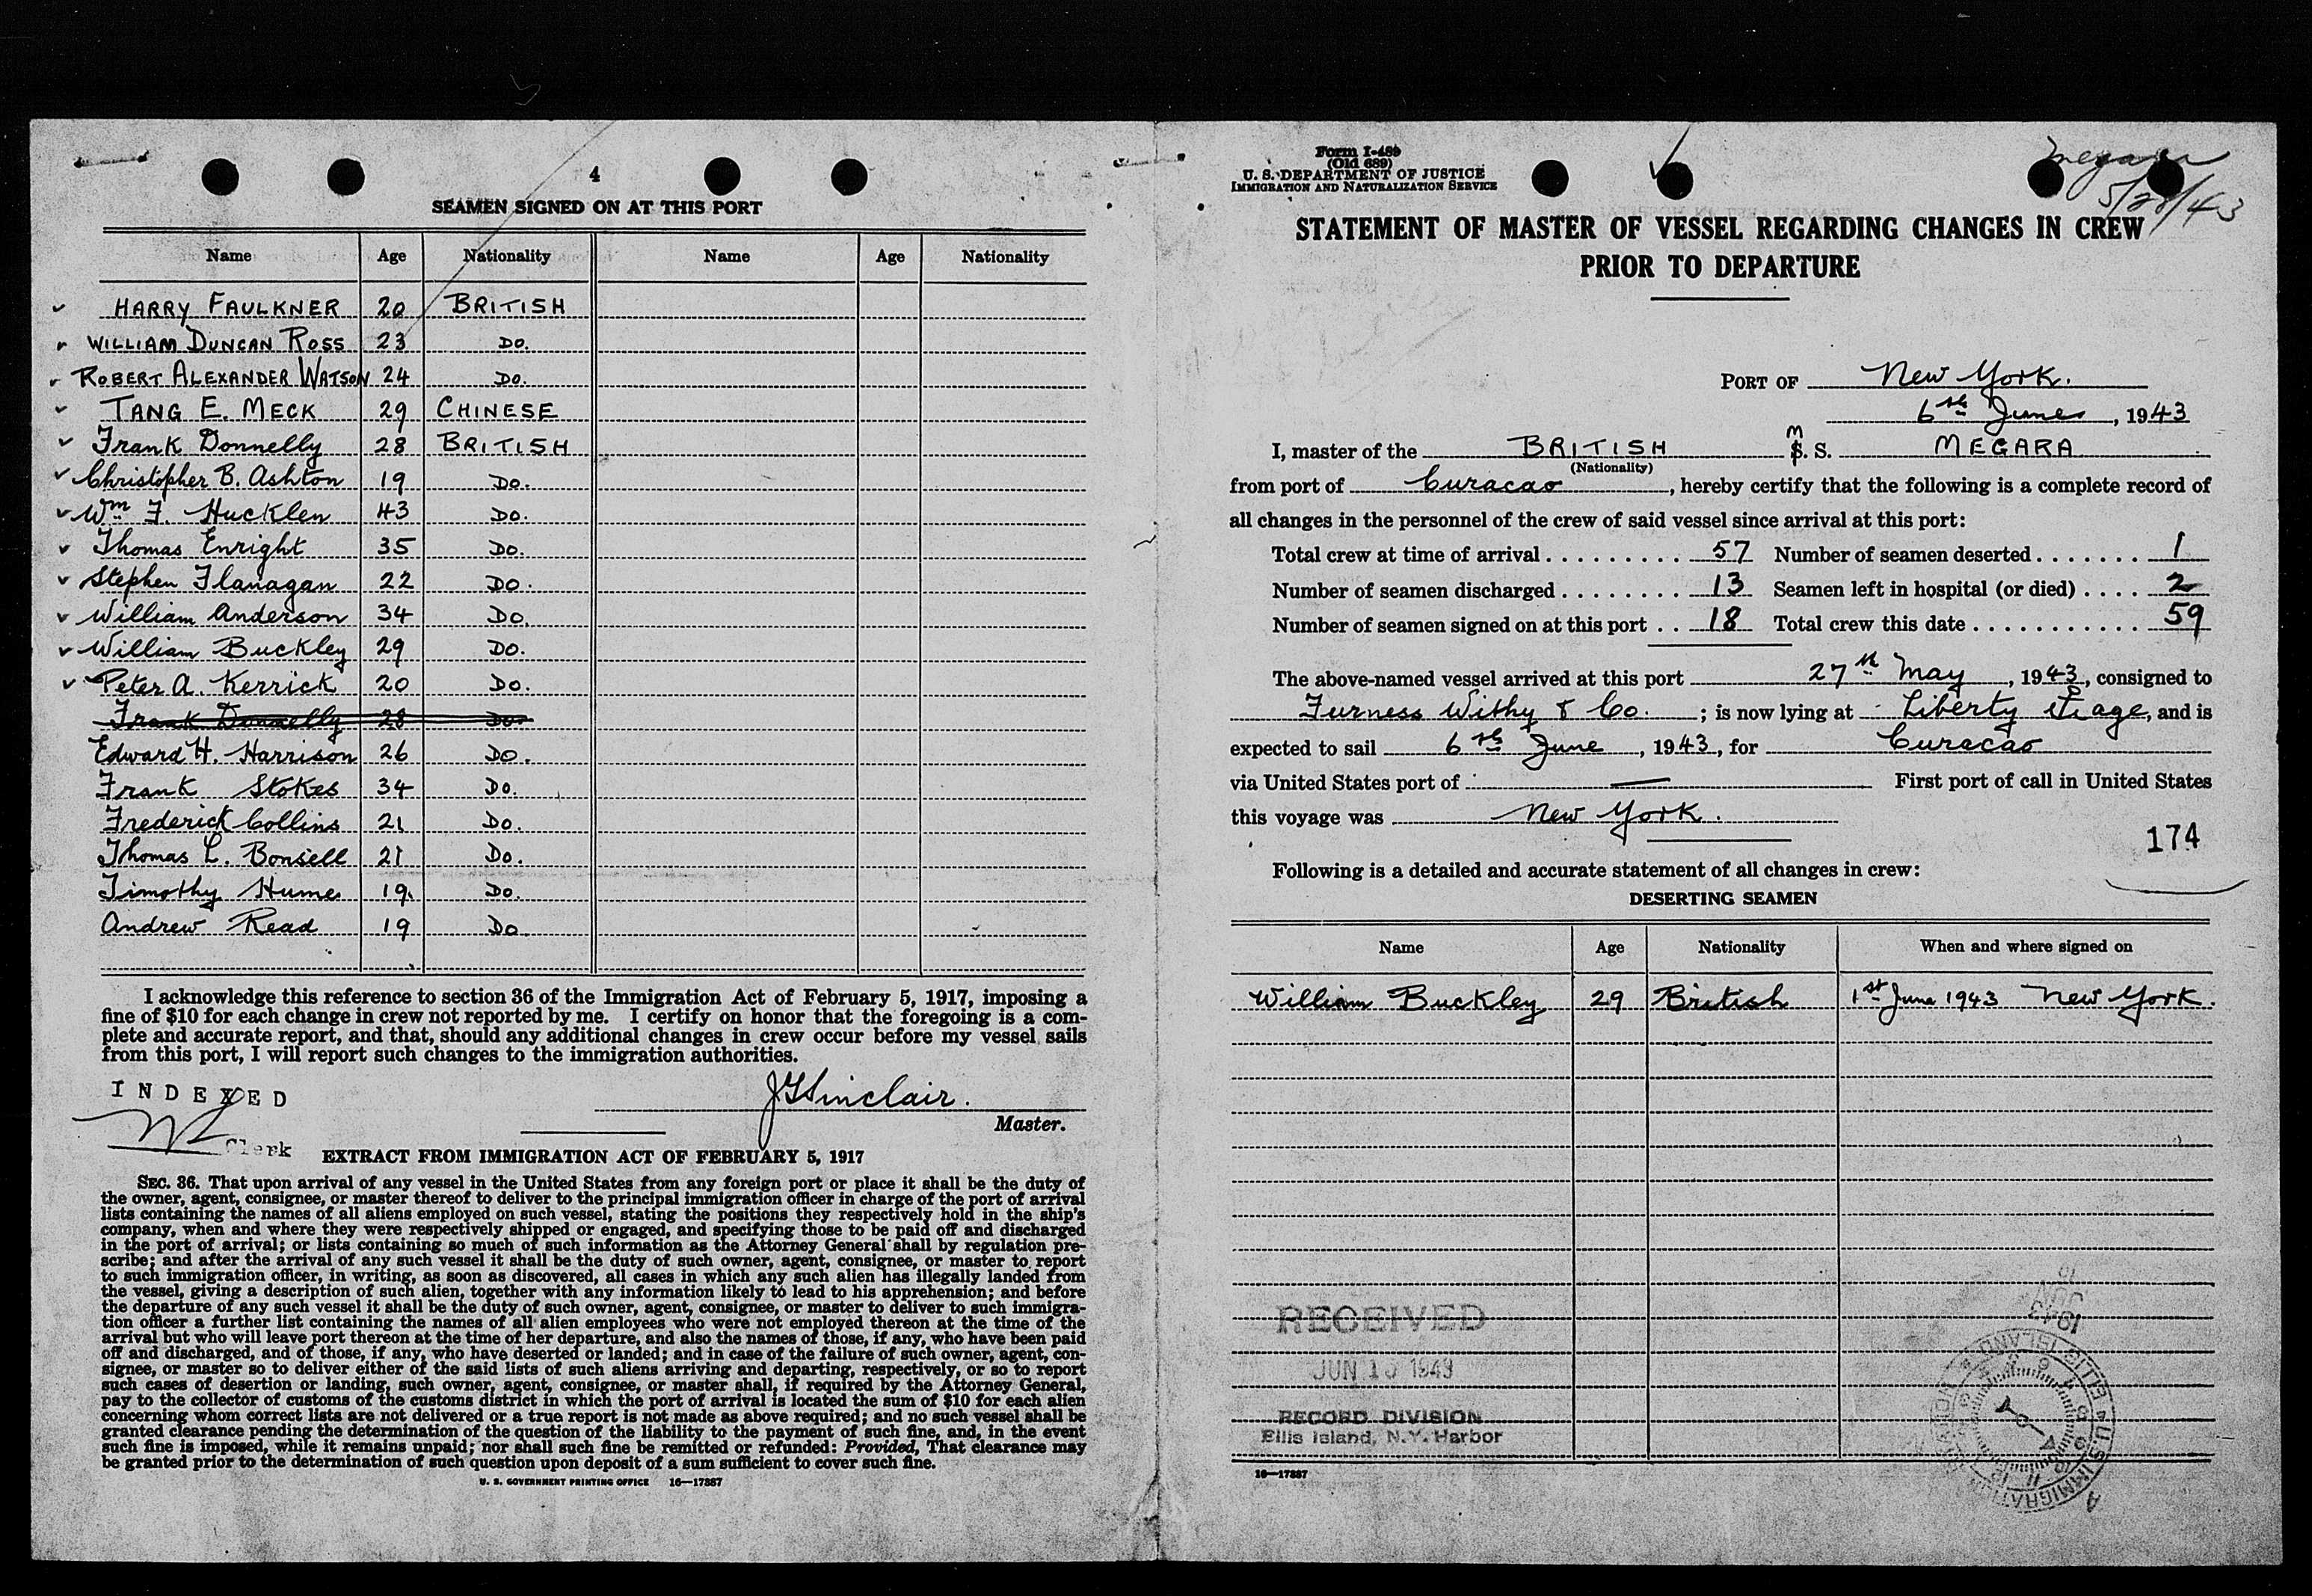 4
SEAMEN SIGNED ON AT THIS PORT
Name Age Nationality Name Age Nationality
HARRY FAULKNER 20 BRITISH
WILLIAM DUNCAN ROSS 23 DO.
ROBERT ALEXANDER WATSON 24 DO.
TANG E. MECK 29 CHINESE
Frank Donnelly 28 BRITISH
Christopher B. Ashton 19 DO.
Wm F. Hucklen 43 DO.
Thomas Enright 35 DO.
Stephen Flanagan 22 DO.
William Anderson 34 DO.
William Buckley 29 DO.
Peter A. Kerrick 20 DO.
Frank Donnelly 28 DO.
Edward H. Harrison 26 DO.
Frank Stokes 34 DO.
Frederick Collins 21 DO.
Thomas L. Bonsell 21 DO.
Timothy Hume 19. DO.
Andrew Read 19 DO
I acknowledge this reference to section 36 of the Immigration Act of February 5, 1917, imposing a
fine of $10 for each change in crew not reported by me. I certify on honor that the foregoing is a com-
plete and accurate report, and that, should any additional changes in crew occur before my vessel sails
from this port, I will report such changes to the immigration authorities.
INDEXED
J G Sinclair.
Master.
Clerk
EXTRACT FROM IMMIGRATION ACT OF FEBRUARY 5, 1917
SEC. 36. That upon arrival of any vessel in the United States from any foreign port or place it shall be the duty of
the owner, agent, consignee, or master thereof to deliver to the principal immigration officer in charge of the port of arrival
lists containing the names of all aliens employed on such vessel, stating the positions they respectively hold in the ship's
company, when and where they were respectively shipped or engaged, and specifying those to be paid off and discharged
in the port of arrival; or lists containing so much of such information as the Attorney General shall by regulation pre-
scribe; and after the arrival of any such vessel it shall be the duty of such owner, agent, consignee, or master to report
to such immigration officer, in writing, as soon as discovered, all cases in which any such alien has illegally landed from
the vessel, giving a description of such alien, together with any information likely to lead to his apprehension; and before
the departure of any such vessel it shall be the duty of such owner, agent, consignee, or master to deliver to such immigra-
tion officer a further list containing the names of all alien employees who were not employed thereon at the time of the
arrival but who will leave port thereon at the time of her departure, and also the names of those, if any, who have been paid
off and discharged, and of those, if any, who have deserted or landed; and in case of the failure of such owner, agent, con-
signee, or master so to deliver either of the said lists of such aliens arriving and departing, respectively, or so to report
such cases of desertion or landing, such owner, agent, consignee, or master shall, if required by the Attorney General,
pay to the collector of customs of the customs district in which the port of arrival is located the sum of $10 for each alien
concerning whom correct lists are not delivered or a true report is not made as above required; and no such vessel shall be
granted clearance pending the determination of the question of the liability to the payment of such fine, and, in the event
such fine is imposed, while it remains unpaid; nor shall such fine be remitted or refunded: Provided, That clearance may
be granted prior to the determination of such question upon deposit of a sum sufficient to cover such fine.
U. S. GOVERNMENT PRINTING OFFICE 16—17887
Form I-489
(Old 689)
U. S. DEPARTMENT OF JUSTICE
IMMIGRATION AND NATURALIZATION SERVICE
Megara
5/28/43
STATEMENT OF MASTER OF VESSEL REGARDING CHANGES IN CREW
PRIOR TO DEPARTURE
PORT OF New York.
6th June, 1943
I, master of the BRITISH M S. S. MEGARA
(Nationality)
from port of Curacao, hereby certify that the following is a complete record of
all changes in the personnel of the crew of said vessel since arrival at this port:
Total crew at time of arrival 57 Number of seamen deserted 1
Number of seamen discharged 13 Seamen left in hospital (or died) 2
Number of seamen signed on at this port 18 Total crew this date 59
The above-named vessel arrived at this port 27th May, 1943, consigned to
Furness Withy & Co.; is now lying at Liberty Stage, and is
expected to sail 6th June, 1943, for Curacao
via United States port of — First port of call in United States
this voyage was New York.
174
Following is a detailed and accurate statement of all changes in crew:
DESERTING SEAMEN
Name Age Nationality When and where signed on
William Buckley 29 British 1st June 1943 New York.
RECEIVED
JUN 10 1943
RECORD DIVISION
Ellis Island, N.Y. Harbor
1943
16—17887